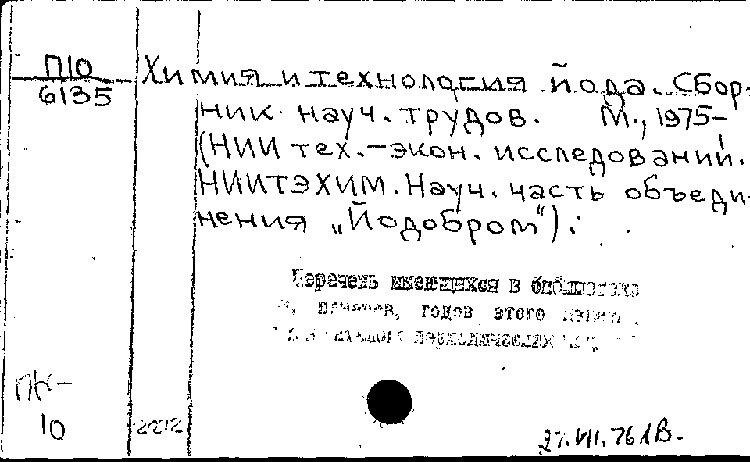 П10
6135
Химия и технология йода. Сбор-
ник науч. трудов. М., 1975-
(НИИ тех.-экон. исследований.
НИИТЭХИМ. Науч. часть объеди-
нения „Йодобром").
Перечень имеющихся в библиотеке
годов этого
периодических
ПК-
10
27.VII.76 1В.